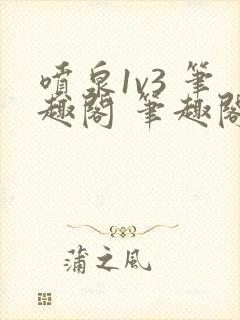 喷泉1v3 筆
趣閣 筆趣閣
蒲之风